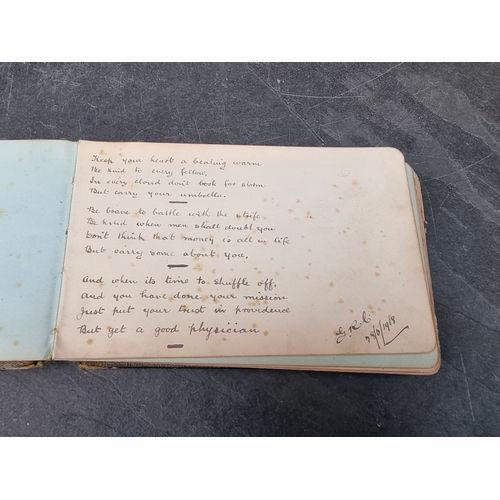 Keep your heart a beating warm
Be kind to every fellow,
In every cloud don't look for storm
But carry your umbrella.
Be brave to battle with the strife
Be kind when men shall doubt you
Don't think that money is all in life
But carry some about you.
And when its time to shuffle off,
And you have done your mission
Just put your trust in providence
But get a good physician
1919